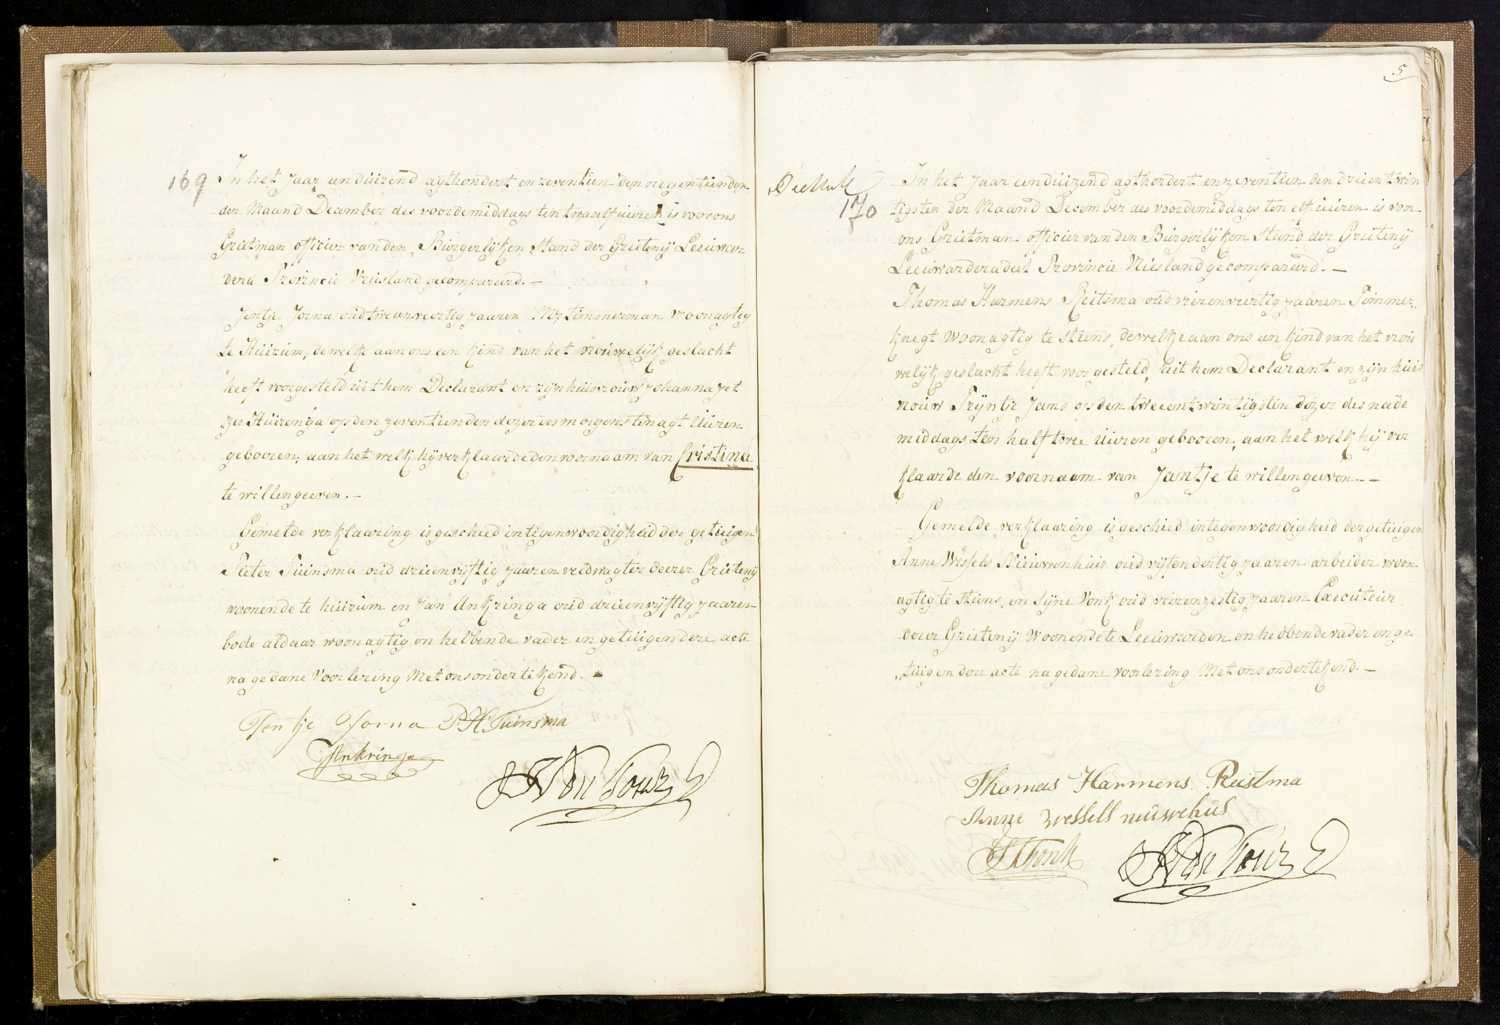 169
In het Jaar een duizend agthondert en zeventien den negentienden
der Maand December des voordemiddags ten twaalf uuren is voor ons
Grietman officier van den Burgerlijken Stand der Grietenij Leeuwar
dera Provincie Vriesland gecompareerd. —
Jentje Jorna oud twe en veertig jaaren Mr timmerman woonagtig
te Huizum, dewelke aan ons een kind van het vrouwelijk geslacht
heeft voorgesteld uit hem Declarant en zijn huisvrouw Johanna
Huizenga op den zeventienden dezer es morgens ten agt uuren
gebooren, aan het welk hij verklaarde den voornaam van Cristina
te willen geeven. —
Gemelde verklaaring is geschied in tegenwoordigheid der getuigen
Pieter Tuinsma oud drieenvyftig jaaren veldwagter deezer Grietenij
woonende te huizum en Jan Ankringa oud drieenvijftig jaaren
bode aldaar woonagtig en hebbende vader en getuigen deze acte
na gedane Voorlezing Met ons ondertekend. —
Jentje Jorna P H Tuinsma
JAnkringa
5
170
In het Jaar een duizend agthondert en zeventien den drieentwin
tigsten der Maand December des voordemiddags ten elf uuren is voor
ons Grietman officier van den Burgerlijken Stand der Grietenij
Leeuwarderadeel Provincie Vriesland gecompareerd. —
Thomas Harmens Reitsma oud vierenveertig jaaren Timmer
knegt woonagtig te Stiens, dewelke aan ons een kind van het vrou
welijk geslacht heeft voorgesteld, uit hem Declarant en zijn huis
vrouw Trijntje Jans op den tweeentwintigsten dezer des nade
middags ten half twee uuren gebooren, aan het welk hij ver
klaarde den voornaam van Jantje te willen geeven. —
Gemelde verklaaring is geschied in tegenwoordigheid der getuigen
Anne Wessels Nieuwenhuis oud vijfendertig jaaren arbeider woon
agtig te Stiens, en Sijne Vonk oud vierenzestig jaaren Executeur
dezer Grietenij Woonende te Leeuwarden en hebbende vader en ge
tuigen deze acte na gedane voorlezing Met ons ondertekend. —
Thomas Harmens Reistma
Anne wessels nieuwehus
S Vonk